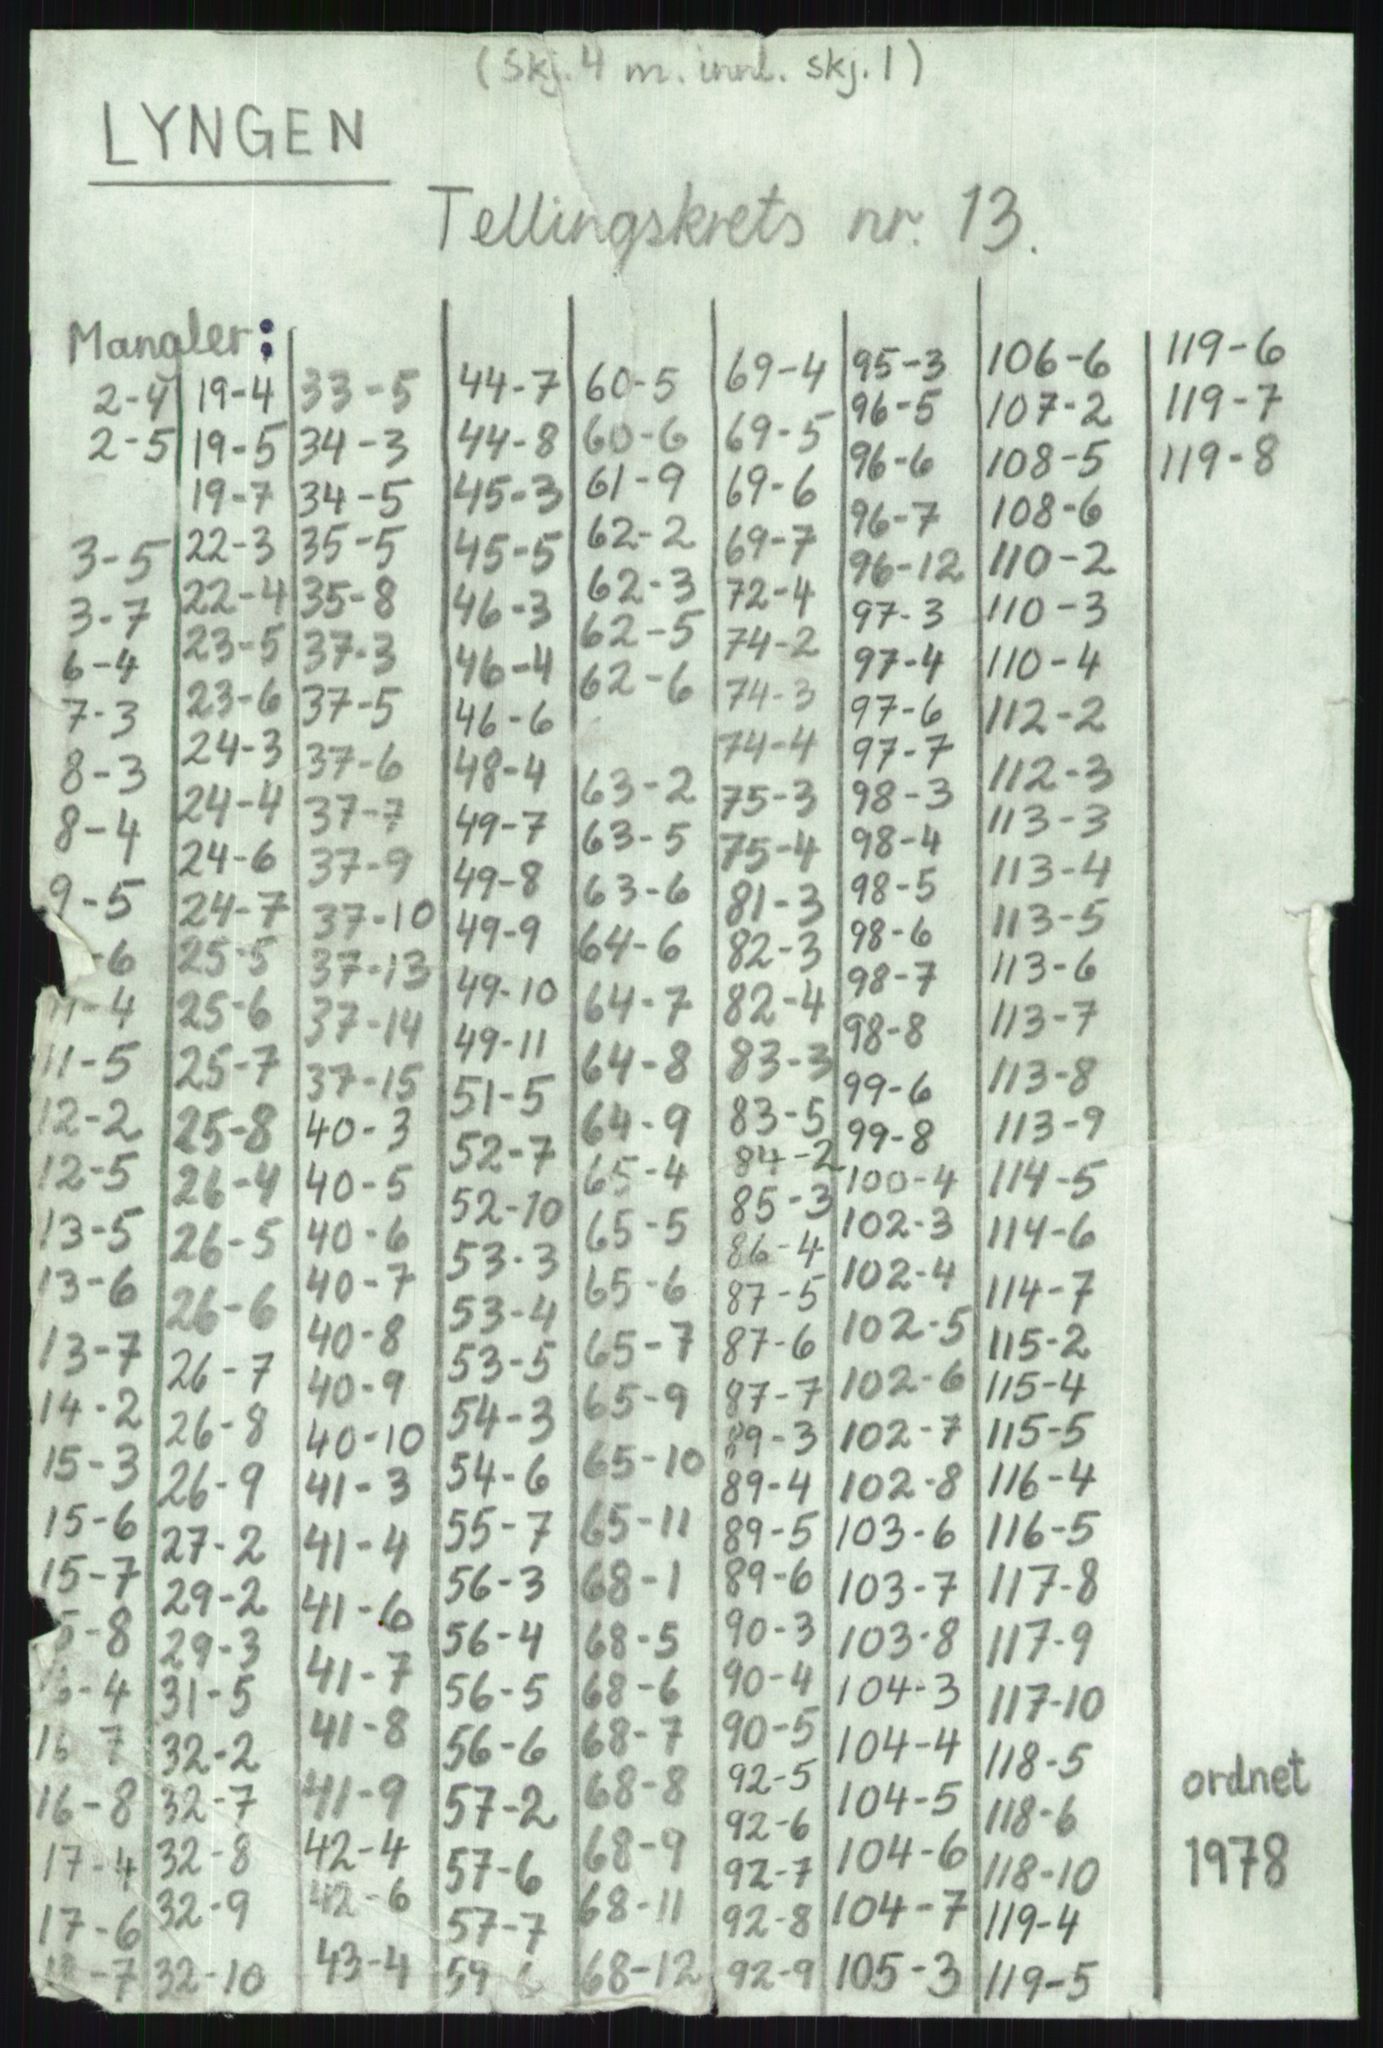 (Skj. 4 m. innl. skj. 1)
LYNGEN
Tellingskrets nr. 13.
Mangler:
2-4
2-5
3-5
3-7
6-4
7-3
8-3
8-4
9-5
-6
11-4
11-5
12-2
12-5
13-5
13-6
13-7
14-2
15-3
15-6
15-7
5-8
6-4
16 7
16-8
17-4
17-6
-7
19-4
19-5
19-7
22-3
22-4
23-5
23-6
24-3
24-4
24-6
24-7
25-5
25-6
25-7
25-8
26-4
26-5
26-6
26-7
26-8
26-9
27-2
29-2
29-3
31-5
32-2
32-7
32-8
32-9
32-10
33-5
34-3
34-5
35-5
35-8
37-3
37-5
37-6
37-7
37-9
37-10
37-13
37-14
37-15
40-3
40-5
40-6
40-7
40-8
40-9
40-10
41-3
41-4
41-6
41-7
41-8
41-9
42-4
42-6
43-4
44-7
44-8
45-3
45-5
46-3
46-4
46-6
48-4
49-7
49-8
49-9
49-10
49-11
51-5
52-7
52-10
53-3
53-4
53-5
54-3
54-6
55-7
56-3
56-4
56-5
56-6
57-2
57-6
57-7
59 6
60-5
60-6
61-9
62-2
62-3
62-5
62-6
63-2
63-5
63-6
64-6
64-7
64-8
64-9
65-4
65-5
65-6
65-7
65-9
65-10
65-11
68-1
68-5
68-6
68-7
68-8
68-9
68-11
68-12
69-4
69-5
69-6
69-7
72-4
74-2
74-3
74-4
75-3
75-4
81-3
82-3
82-4
83-3
83-5
84-2
85-3
86-4
87-5
87-6
87-7
89-3
89-4
89-5
89-6
90-3
90-4
90-5
92-5
92-6
92-7
92-8
92-9
95-3
96-5
96-6
96-7
96-12
97-3
97-4
97-6
97-7
98-3
98-4
98-5
98-6
98-7
98-8
99-6
99-8
100-4
102-3
102-4
102-5
102-6
102-7
102-8
103-6
103-7
103-8
104-3
104-4
104-5
104-6
104-7
105-3
106-6
107-2
108-5
108-6
110-2
110-3
110-4
112-2
112-3
113-3
113-4
113-5
113-6
113-7
113-8
113-9
114-5
114-6
114-7
115-2
115-4
115-5
116-4
116-5
117-8
117-9
117-10
118-5
118-6
118-10
119-4
119-5
119-6
119-7
119-8
ordnet
1978